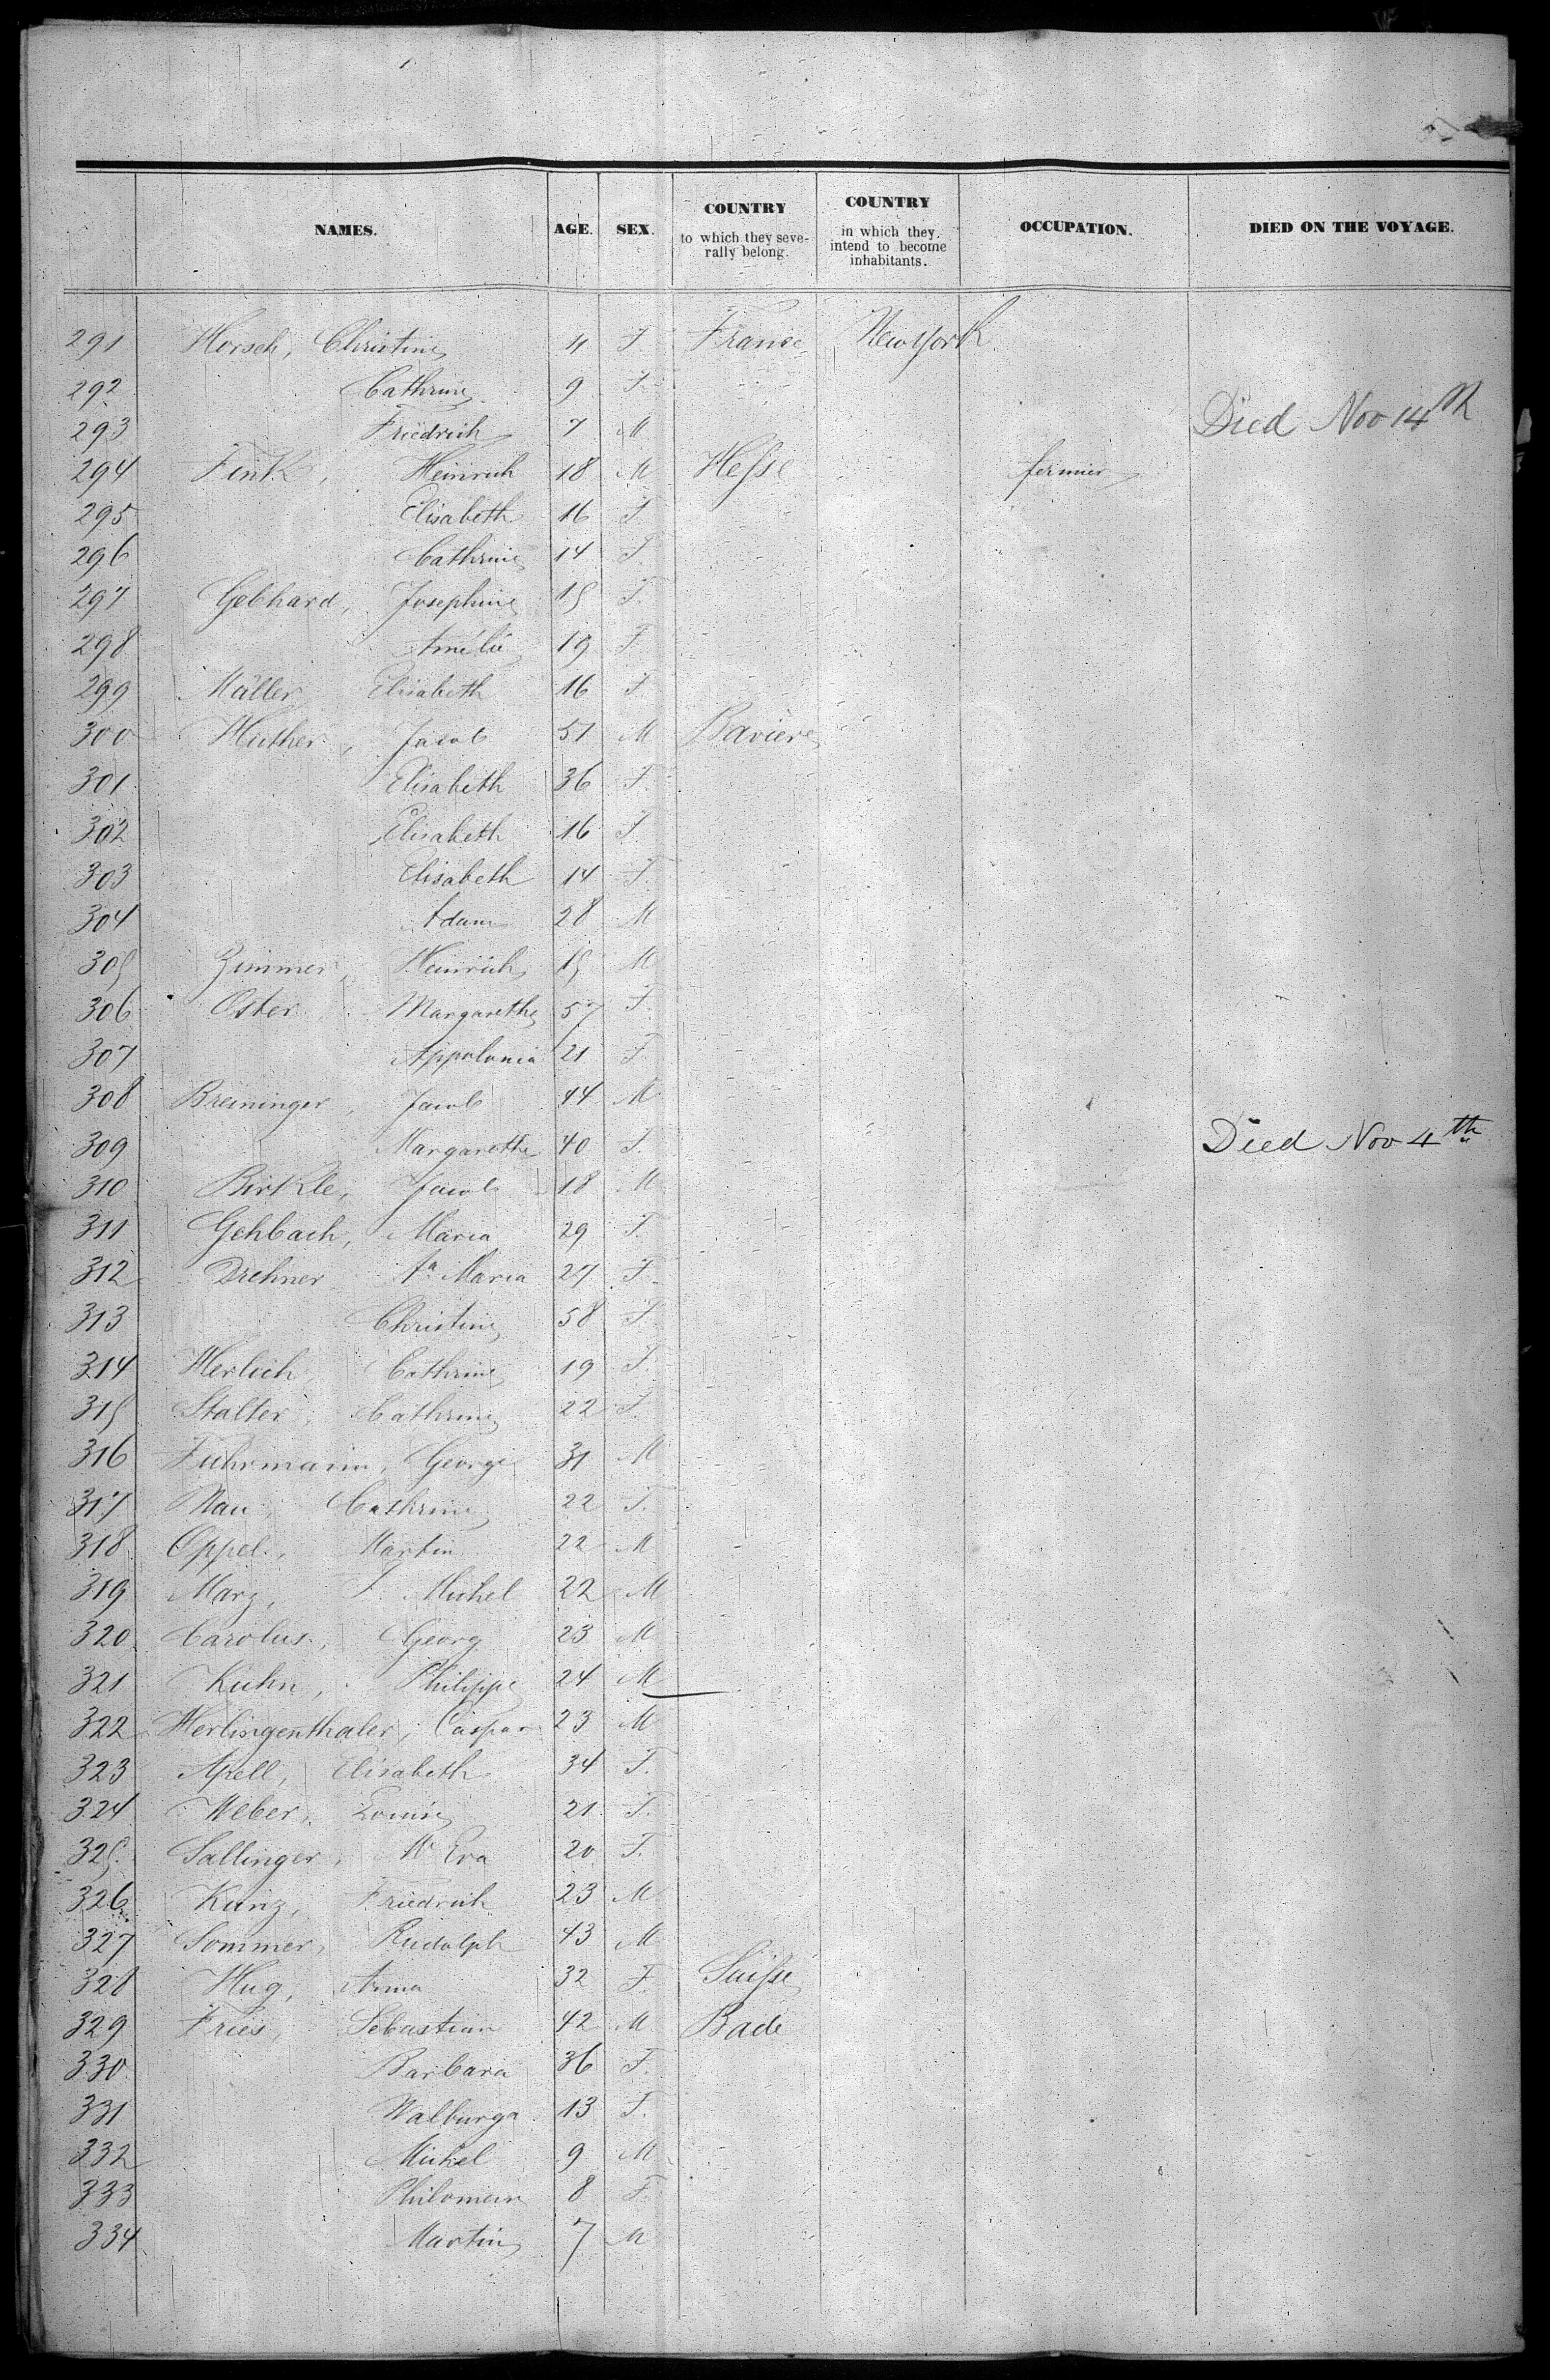 NAMES. AGE. SEX. COUNTRY to which they seve-rally belong. COUNTRY in which they intend to become inhabitants. OCCUPATION. DIED ON THE VOYAGE.
291 Horsch, Christine 11 F France New york
292 Cathrine 9 F
293 Friedrich 7 M Died Nov 14th
294 Fink, Heinrich 18 M Hesse fermier
295 Elisabeth 16 F.
296 Cathrine 14 F.
297 Gebhard, Josephine 15 F.
298 Amélie 19 F
299 Müller Elisabeth 16 F
300 Huther, Jacob 51 M Bavière
301 Elisabeth 36 F.
302 Elisabeth 16 F.
303 Elisabeth 14 F.
304 Adam 28 M
305 Zimmer, Heinrich 15 M
306 Oster, Margarethe 57 F.
307 Appolonia 21 F.
308 Breininger, Jacob 44 M
309 Margarethe 40 F. Died Nov 4th
310 Birkle, Jacob 18 M
311 Gehbach, Maria 29 F.
312 Drehner Aa Maria 27 F.
313 Christine 58 F.
314 Herlich, Cathrine 19 F.
315 Stalter, Cathrine 22 F.
316 Fuhrmann, George 31 M
317 Nau, Cathrine 22 F.
318 Oppel, Martin 22 M
319 Marz, F. Michel 22 M
320 Carolus, Georg 23 M
321 Kuhn, Philippe 24 M
322 Herlingenthaler, Caspar 23 M
323 Apell, Elisabeth 34 F.
324 Weber, Louise 21 F.
325 Sallinger, M Eva 20 F.
326 Kunz, Friedrich 23 M
327 Sommer, Rudolph 43 M
328 Hug, Anna 32 F. Suisse
329 Fries, Sebastian 42 M Bade
330 Barbara 36 F.
331 Walburga 13 F.
332 Michel 9 M
333 Philomen 8 F.
334 Martin 7 M